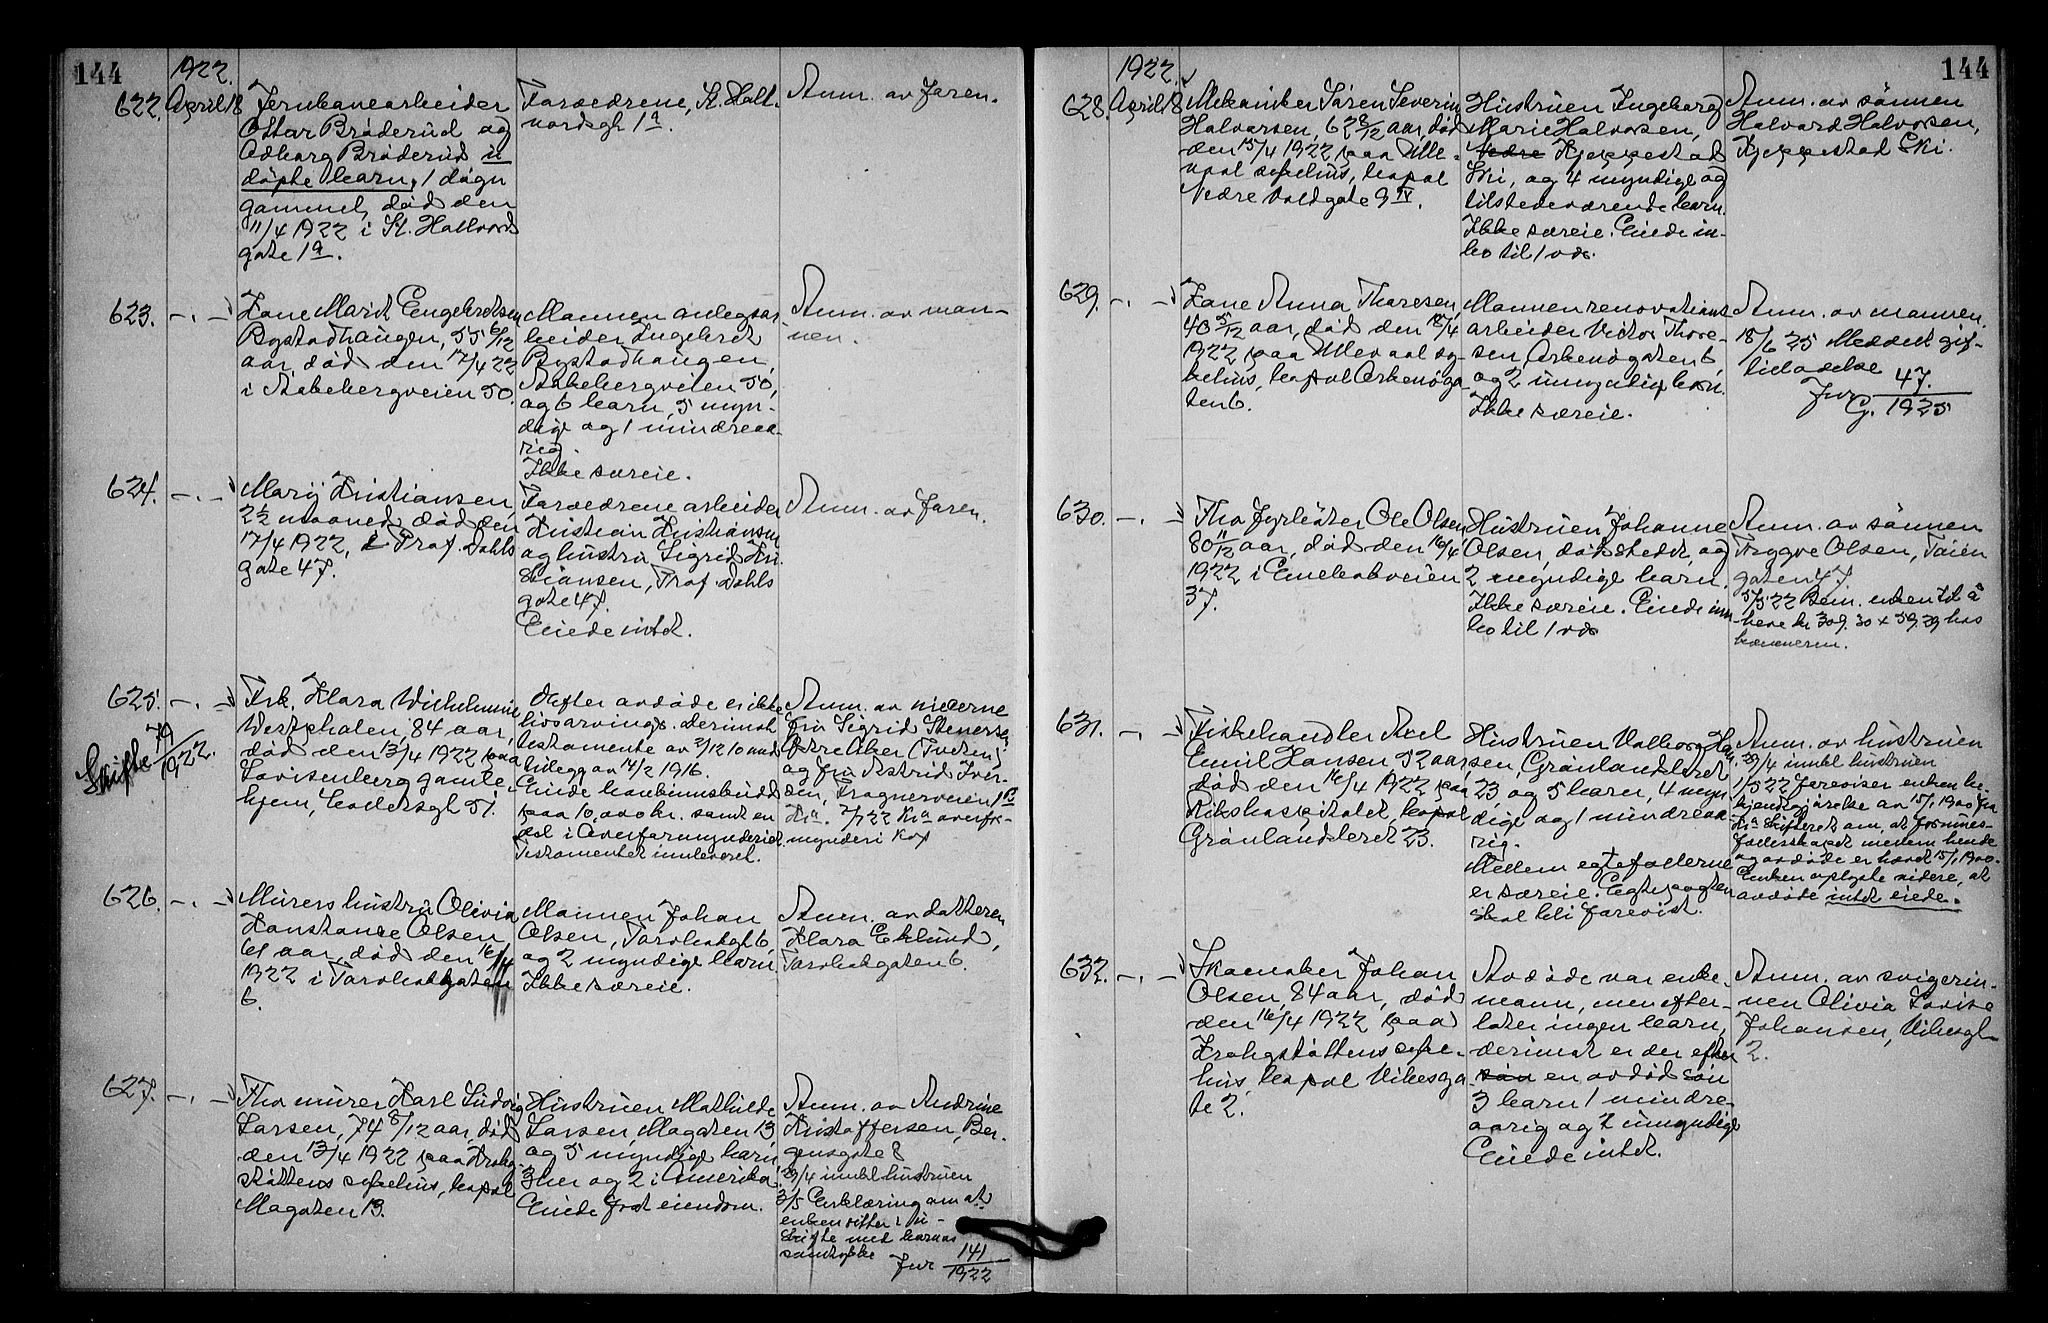 144
1922.
622. April 18
Jernbanearbeider
Ottar Bröderud og
Aasborg Bröderud u
döpte barn, 1 dögn
gammel, död den
11/4 1922 i St. Hallvards
gate 1a.
Forældrene, St. Hall-
vardsgt. 1a.
Anm. av faren.
623. -"-
Kone Marit Engebretsen
Bystadhaugen, 55 6/12
aar, död den 17/4 22
i Stabebergveien 50.
Mannen anlegsar
beider Ingebret
Bystadhaugen,
Stabebergveien 50,
og 6 barn, 5 myn-
dige og 1 mindreaa-
rig.
Ikke særeie.
Anm. av man-
nen.
624. -"-
Marij Kristiansen,
2½ maaned, död den
17/4 1922, i Prof. Dahls
gate 47.
Forældrene arbeider
Kristian Kristiansen
og hustru Sigrid Kri
stiansen, Prof. Dahls
gate 47.
Eiede intet.
Anm. av faren.
625. -"-
Skifte 79/1922.
Frk. Klara Wilhelmine
Westphalen, 84 aar,
död den 13/4 1922 paa
Lovisenberg gamle-
hjem,
51.
Efter avdöde er ikke
livsarvinger. Derimot
testamente av 2/12 10 med
tillegg av 14/2 1916.
Eiede
paa 10,000 kr. samt en
del i Overformynderiet
Testamentet innleveret.
Anm. av niecerne
fru Sigrid Stenersen
Östre Aker (Tveten)
og fru Astrid Iver-
sen, Frognerveien
7/7 22 Kr.a overfor-
mynderi
626. -"-
Murers hustru Olivia
Konstance Olsen,
61 aar, död den 16/4
1922 i Torvbakkgaten
6.
Mannen Johan
Olsen, Torvbakgt. 6,
og 2 myndige barn.
Ikke særeie.
Anm. av datteren
Klara Eklund,
Torvbakgaten 6.
627. -"-
Fhv. murer Karl Ludvig
Larsen, 74 8/12 aar, död
den 13/4 1922 paa Krohg
stöttens sykehus, bopæl
Magaten 13.
Hustruen Mathilde
Larsen, Magaten 13
og 5 myndige barn,
3 her og 2 i Amerika.
Eiede fast eiendom.
Anm. av Andrine
Kristoffersen, Ber-
gensgate 8
29/4 innk. hustruen
3/5 Erklæring om at
enken sitter i u-
skifte med barnas
samtykke
Jnr 141/1922
144
1922.
628. April 18
Mekaniker Sören Severin
Halvorsen, 62 8/12 aar, död
den 15/4 1922 paa Ulle-
vaal sykehus, bopæl
Nedre Voldgate 9 IV.
Hustruen Ingeborg
Marie Halvorsen,
Nedre Kjeppestad
Ski, og 4 myndige og
tilstedeværende barn.
Ikke særeie. Eiede in-
bo til
Anm. av sönnen
Halvard Halvorsen,
Kjeppestad Ski.
629. -"-
Kone Anna Thoresen,
40 5/12 aar, död den 15/4
1922 paa Ullevaal sy-
kehus, bopæl Arbeidsga-
ten 6.
Mannen renovations
arbeider Victor Thore-
sen, Arbeidsgaten 6
og 2 umyndige barn.
Ikke særeie.
Anm. av mannen.
18/6 25 Meddelt gif-
tiladelse
Jnr 47./G. 1925
630. -"-
Fhv. fyrböter Ole Olsen
80 11/12 aar, död den 16/4
1922 i Enebakveien
37.
Hustruen Johanne
Olsen, dödsstedet, og
2 myndige barn.
Ikke særeie. Eiede inn
bo til
Anm. av sönnen
Trygve Olsen, Töien
gaten 47.
5/5 22 Bem. enken til å
heve kr 309.30 + 59.29 hos
kæmneren.
631. -"-
Fiskehandler Axel
Emil Hansen 52 aar,
död den 16/4 1922 paa
Rikshospitalet, bopæl
Grönlandsleret 23.
Hustruen Valborg Han
sen, Grönlandsleret
23 og 5 barn, 4 myn
dige og 1 mindreaa-
rig.
Mellem egtefællerne
er særeie. Egtepagten
skal bli forevist.
Anm. av hustruen
29/4 innk. hustruen
1/5 22 foreviser enken be-
kjendtgjörelse av 15/1 1900 fra
Kr.a Skifteret om, at formues-
fællesskapet mellem hende
og avdöde er hævet 15/1 1900.
Enken oplyste videre, at
avdöde intet eiede.
632. -"-
Skomaker Johan
Olsen, 84 aar, död
den 16/4 1922 paa
Krohgstöttens syke-
hus bopæl Vibesga
te 2.
Avdöde var enke-
mann, men efter-
later ingen barn,
derimot er der efter
sön en avdöd sön
3 barn 1 mindre-
aarig og 2 umyndige
Eiede intet.
Anm. av svigerin-
nen Olivia Lovise
Johansen, Vibesgt.
2.